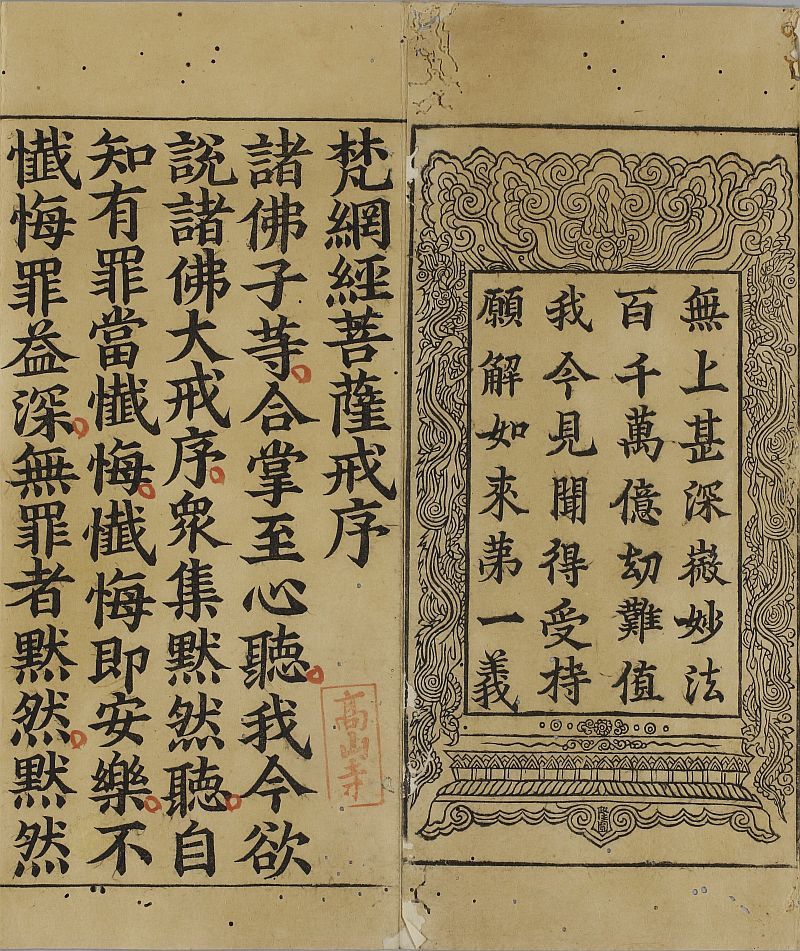 無上甚深微妙法
百千萬億劫難值
我今見聞得受持
願解如來苐一義
梵網經菩薩戒序
諸佛子䓁合掌至心聽我今欲
說諸佛大戒序眾集默然聽自
知有罪當懺悔懺悔即安樂不
懺悔罪益深無罪者默然默然
高山寺